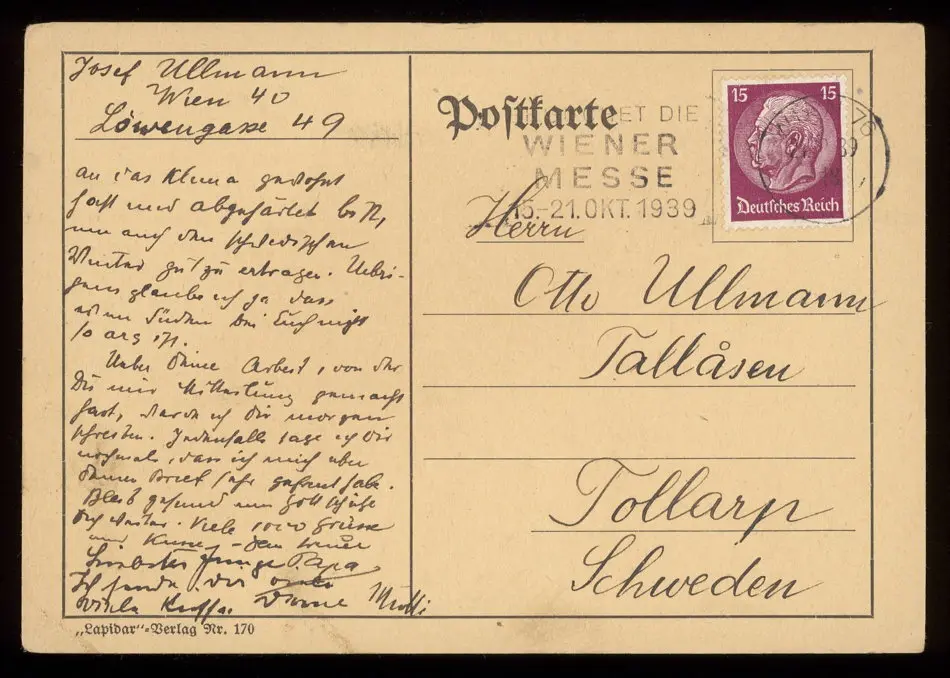 Josef Ullmann
Wien 40
Löwengasse 49
an das Klima gewöhnt
hast und abgehärtet bist,
um auch den schwedischen
Winter gut zu ertragen. Uebri-
gens glaube ich ja dass
im Süden bei Euch nicht
so arg ist.
Ueber Deine Arbeit, von der
Du mir Mitteilung gemacht
hast, werde ich Dir morgen
schreiben. Jedenfalls sage ich Dir
nochmals, dass ich mich über
Deinen Brief sehr gefreut habe.
Bleib gesund und Gott schütze
Dich weiter. Viele 1000 Grüsse
und Küsse, Dein treuer
Papa
Liebster Junge
Ich sende dir
viele Küsse. Deine Mutti
Postkarte
ET DIE
WIENER
MESSE
15.-21. OKT. 1939
15 15
Deutsches Reich
Herrn
Otto Ullmann
Tallåsen
Tollarp
Schweden
„Lapidar"-Verlag Nr. 170